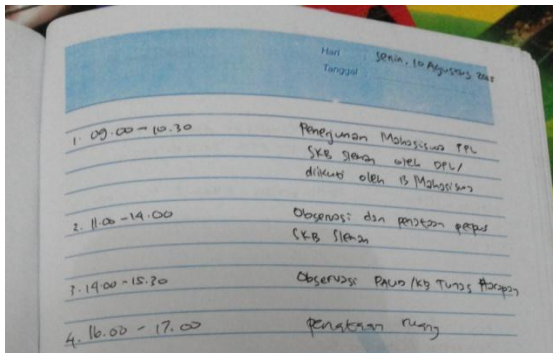 Hari Senin, 10 Agustus 2015
Tanggal
1. 09.00 - 10.30 Penerjunan Mahasiswa PPL
SKB Sleman oleh DPL/
diikuti oleh 13 Mahasiswa
2. 11.00 - 14.00 Observasi dan penataan perpus
SKB Sleman
3. 14.00 - 15.30 Observasi PAUD/KB Tunas Harapan
4. 16.00 - 17.00 penataan ruang